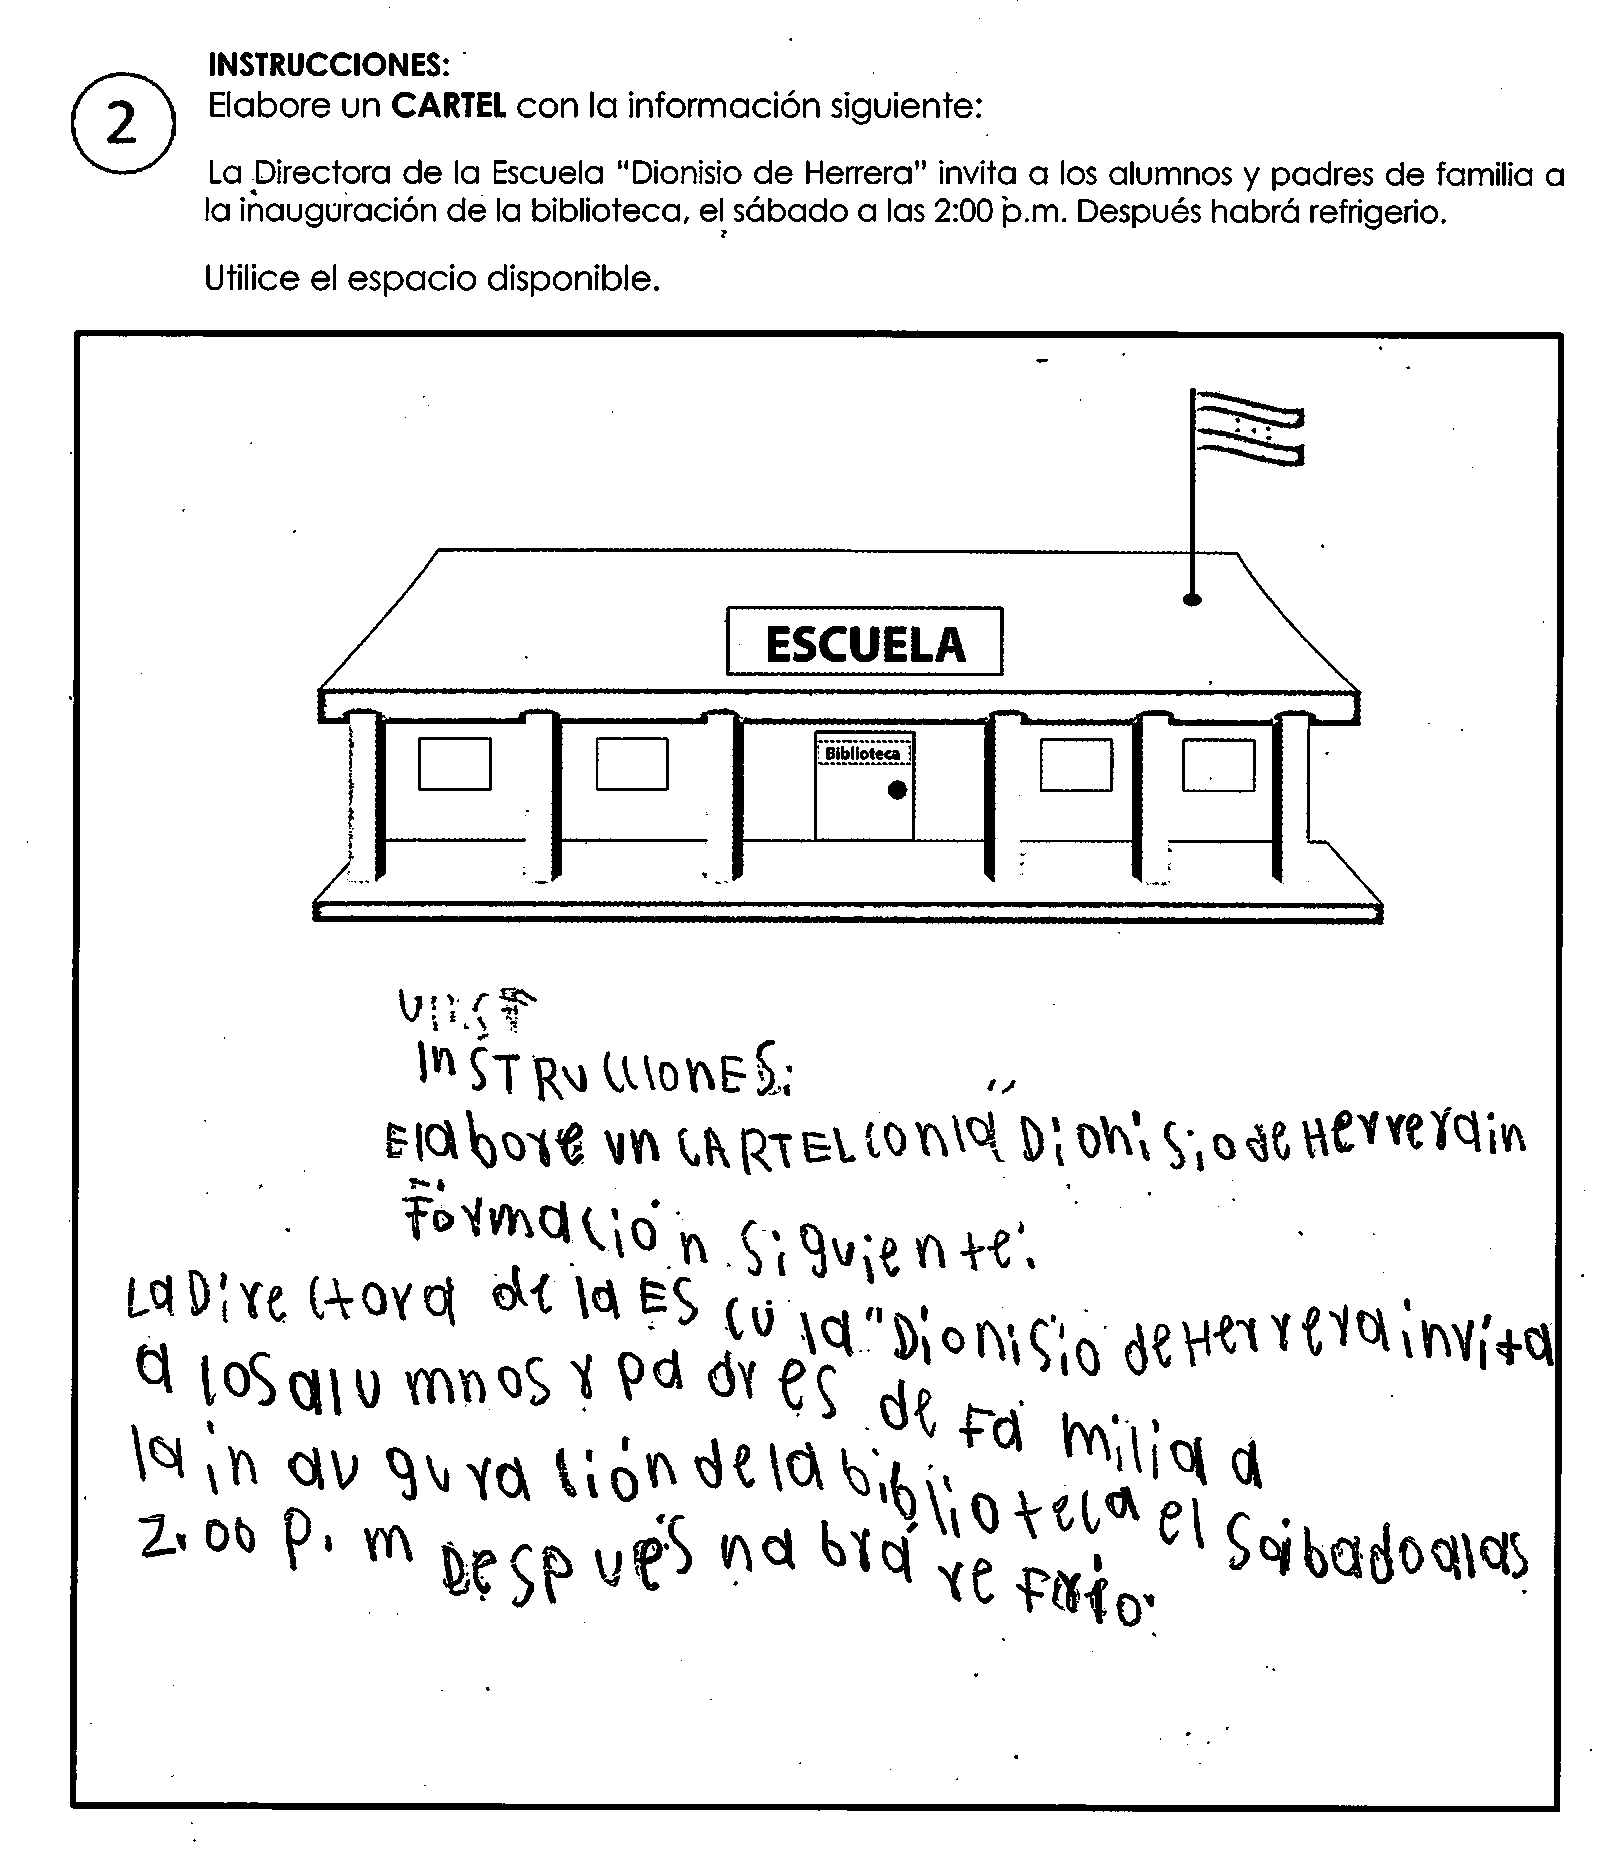 INSTRUCCIONES:
2
Elabore un CARTEL con la información siguiente:
La Directora de la Escuela “Dionisio de Herrera” invita a los alumnos y padres de familia a
la inauguración de la biblioteca, el sábado a las 2:00 p.m. Después habrá refrigerio.
Utilice el espacio disponible.
ESCUELA
Biblioteca
InSTRUCCIONES:
Elabore un CARTEL con la" Dionisio de Herrera in
Formación siguiente:
La Directora de la EScula "Dionisio de Herrera invita
a los alumnos y padres de familia a
la inauguración de la biblioteca el Sábado a las
2:00 p.m Después habrá